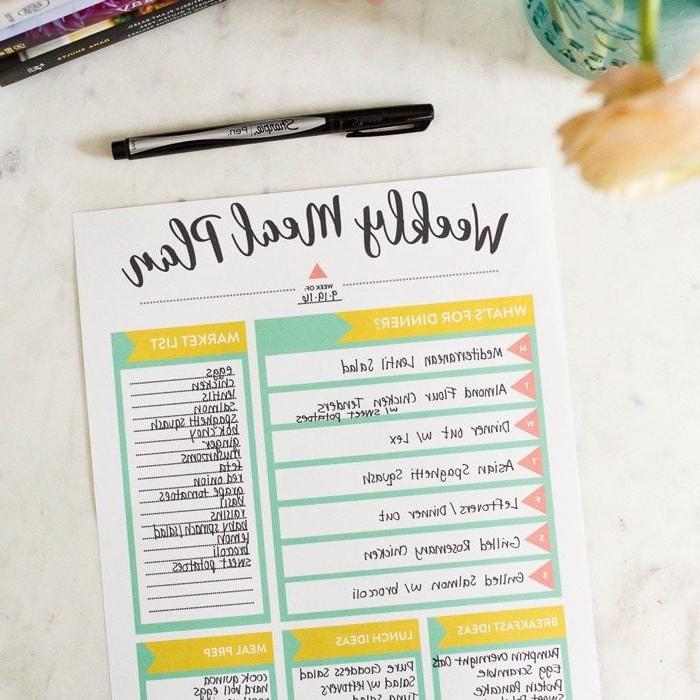 DANA SHULTZ
Sharpie. Pen.
Weekly Meal Plan
WEEK OF:
9-19-16
WHAT'S FOR DINNER?
M Mediterranean Lentil Salad
T Almond Flour Chicken Tenders
w/ sweet potatoes
W Dinner out w/ Lex
T Asian Spaghetti Squash
F Leftovers/Dinner out
S Grilled Rosemary Chicken
S Grilled Salmon w/ broccoli
MARKET LIST
eggs
chicken
lentils
salmon
spaghetti squash
bok choy
ginger
mushrooms
feta
red onion
grape tomatoes
basil
raisins
baby spinach/salad
lemon
broccoli
sweet potatoes
BREAKFAST IDEAS
Pumpkin Overnight Oats
Egg Scramble
Protein Pancake
Sweet Potato
LUNCH IDEAS
Pure Goddess Salad
Salad w/ leftovers
Tuna Salad
MEAL PREP
cook quinoa
hard boil eggs